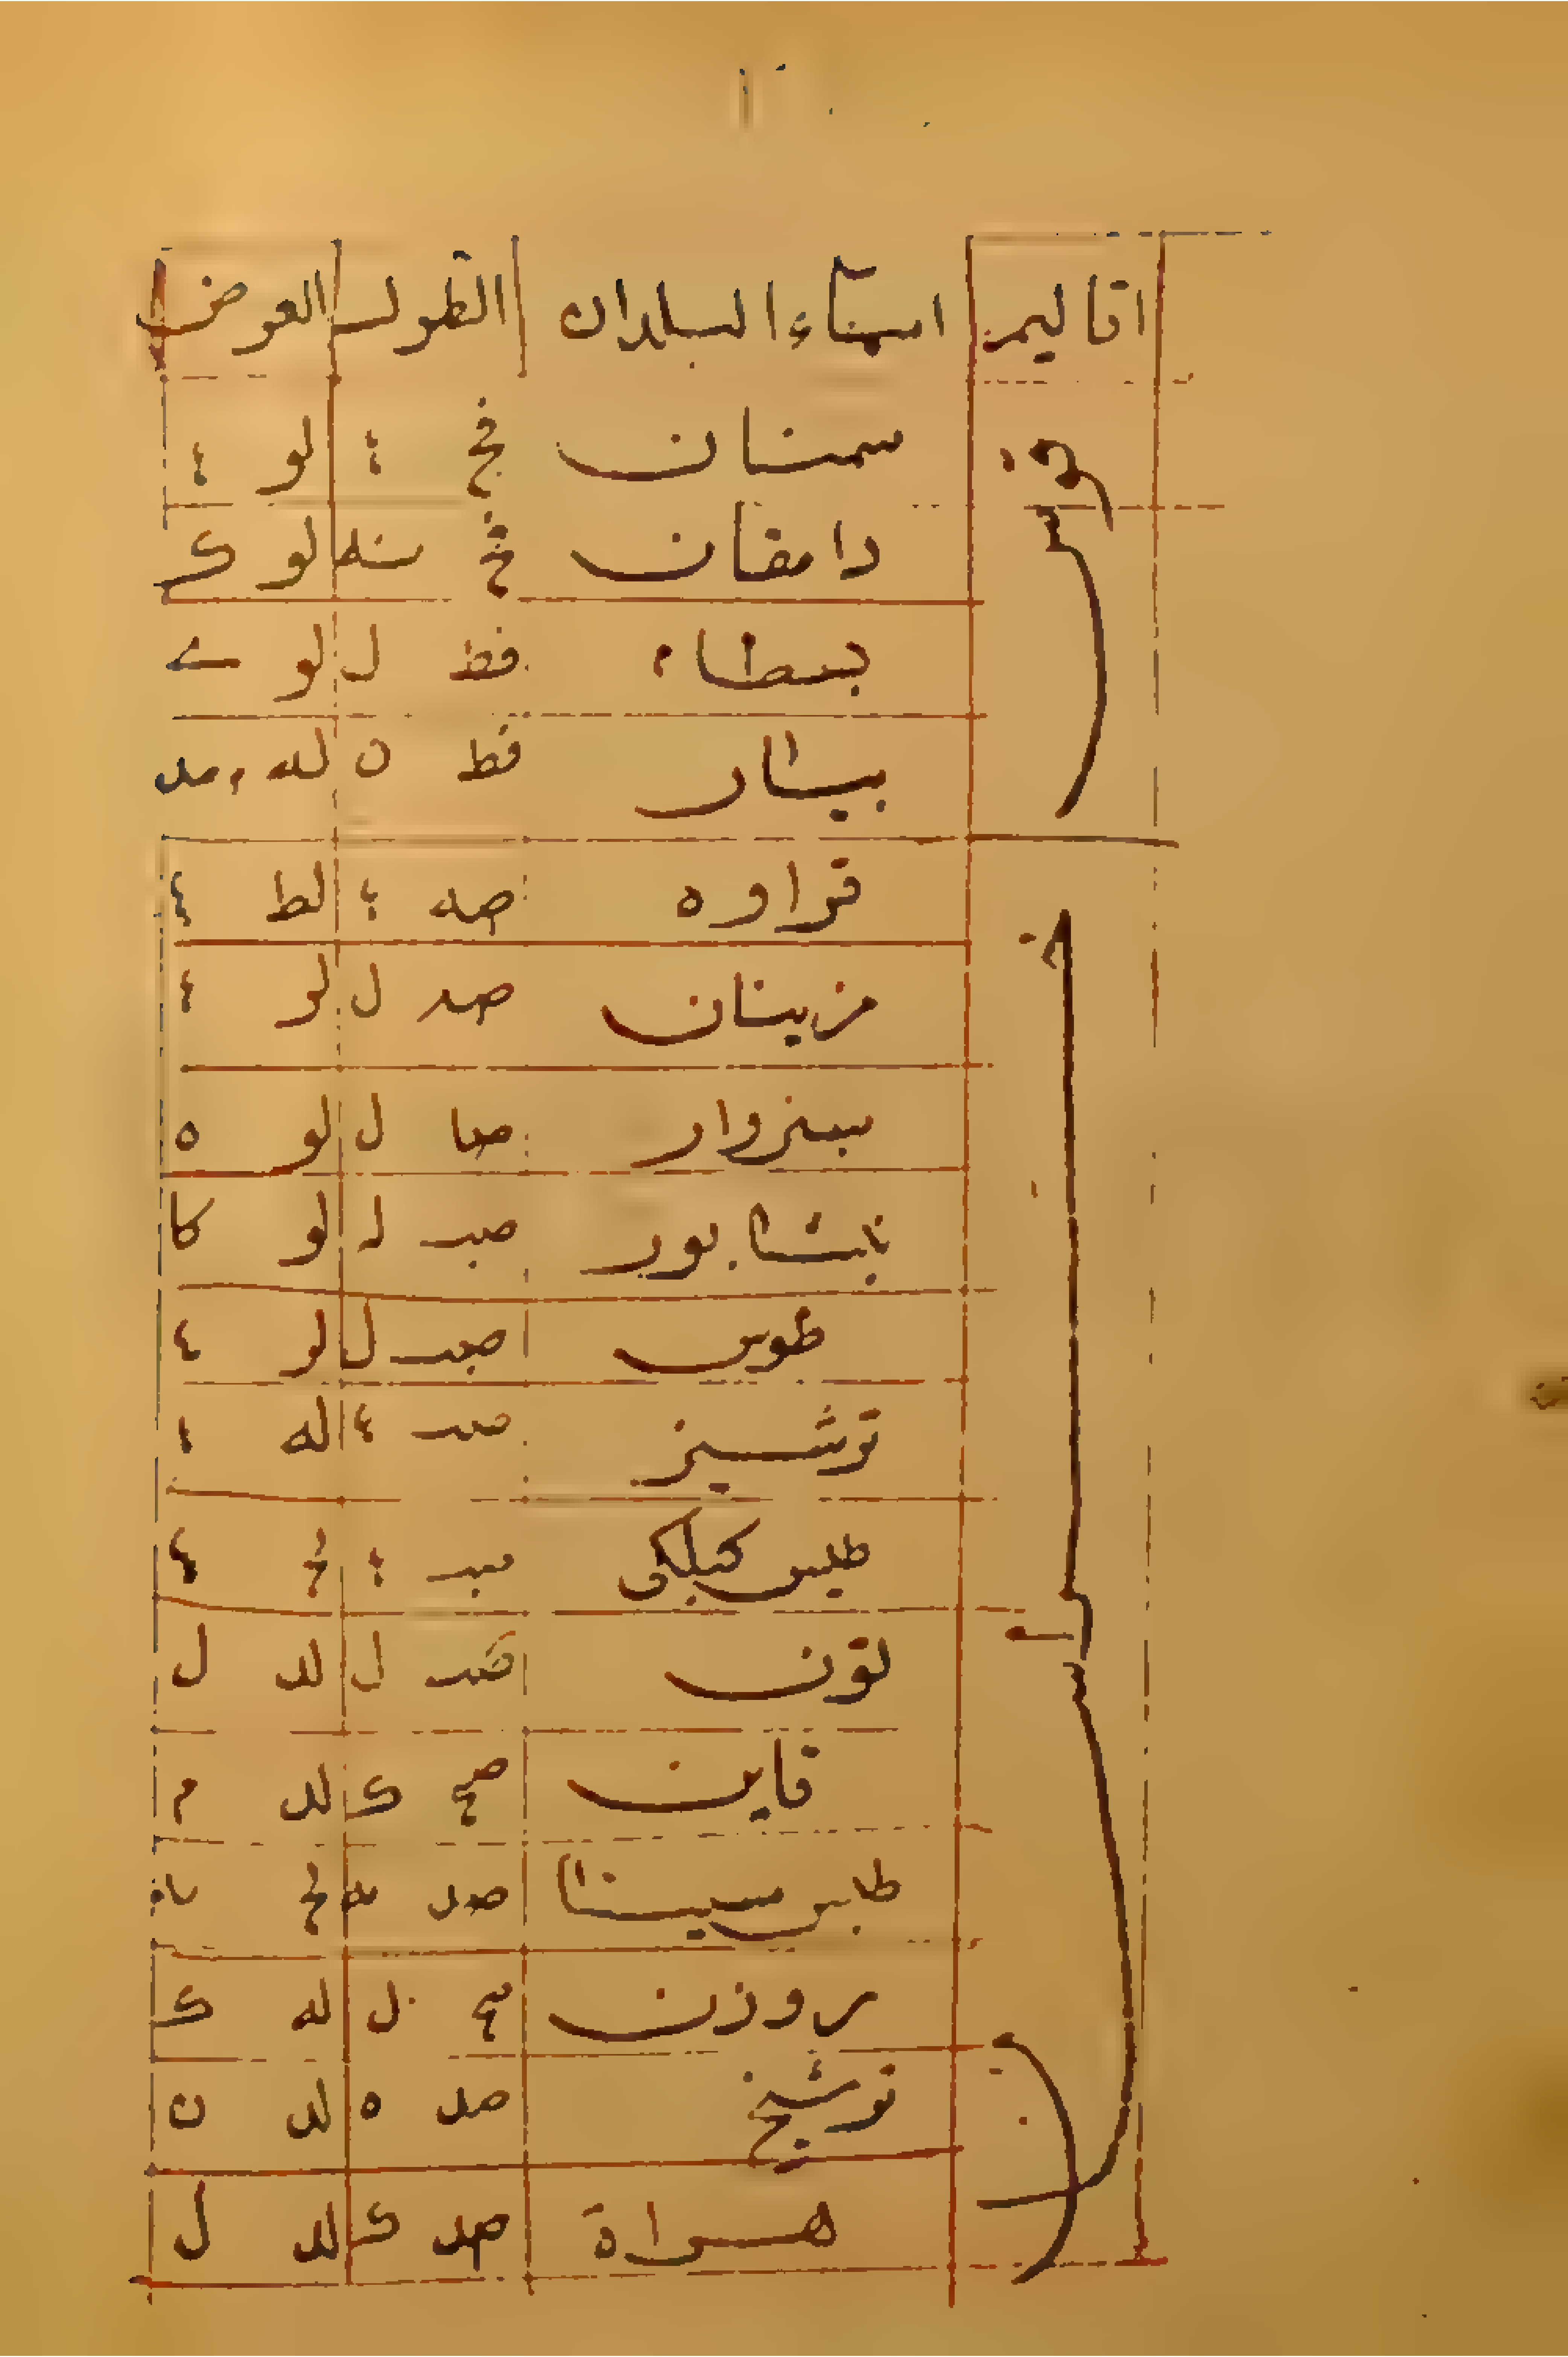 اقاليم اسماء البلدان الطول العرض
سمنان فح ۽ لو ۽
دامغان فح نه لو ك
بسطام فط ل لو ے
بيار فط ن له مد
قراوه صه ۽ لط ۽
مزينان صد ل لو ۽
سبزوار صا ل لو ه
نيشابور صب ل لو كا
طوس صب ل لو ۽
ترشيز صب ۽ له ۽
طبس كيلكى صب ۽ لح ۽
تون صب ل لد ل
قاين صح ك لد م
طبس سينا صد لح
زوزن صح ل له ك
توشيخ صد ه لد ن
هراة صد ك لد ل